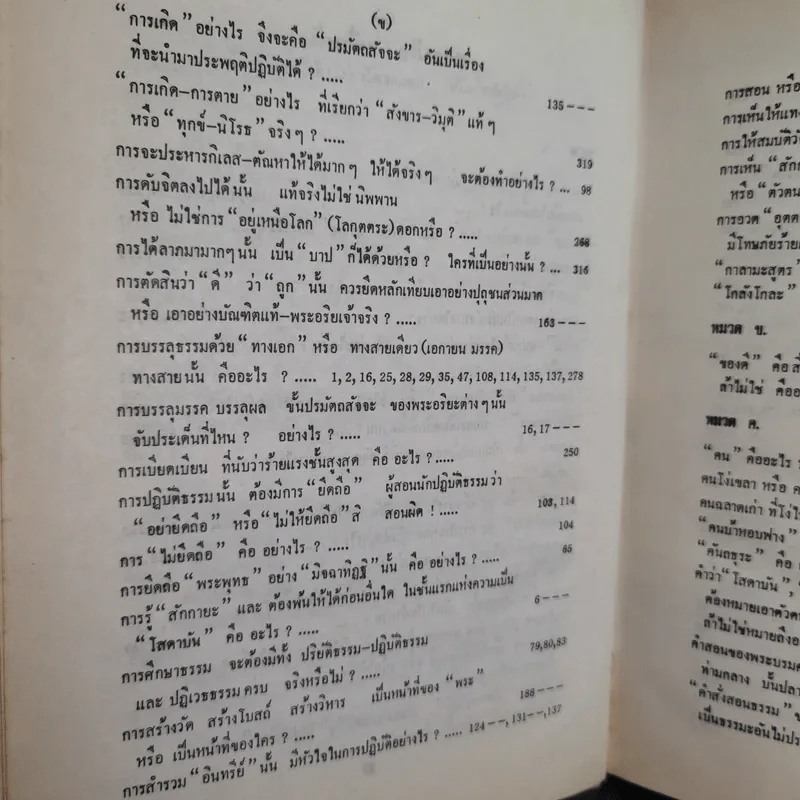 (ข)
“การเกิด” อย่างไร จึงจะคือ “ปรมัตถสัจจะ” อันเป็นเรื่อง
ที่จะนำมาประพฤติปฏิบัติได้ ? ..... 135---
“การเกิด–การตาย” อย่างไร ที่เรียกว่า “สังขาร–วิมุติ” แท้ๆ
หรือ “ทุกข์–นิโรธ” จริงๆ ? ..... 319
การจะประหารกิเลส–ตัณหาให้ได้มากๆ ให้ได้จริงๆ จะต้องทำอย่างไร ? ... 98
การดับจิตลงไปได้นั้น แท้จริงไม่ใช่ นิพพาน
หรือ ไม่ใช่การ “อยู่เหนือโลก” (โลกุตตระ) ดอกหรือ ? ..... 268
การได้ลาภมามากๆ นั้น เป็น “บาป” ก็ได้ด้วยหรือ ? ใครที่เป็นอย่างนั้น ? ... 316
การตัดสินว่า “ดี” ว่า “ถูก” นั้น ควรยึดหลักเทียบเอาอย่างปุถุชนส่วนมาก
หรือ เอาอย่างบัณฑิตแท้–พระอริยเจ้าจริง ? ..... 163---
การบรรลุธรรมด้วย “ทางเอก” หรือ ทางสายเดียว (เอกายน มรรค)
ทางสายนั้น คืออะไร ? ..... 1, 2, 16, 25, 28, 29, 35, 47, 108, 114, 135, 137, 278
การบรรลุมรรค บรรลุผล ขั้นปรมัตถสัจจะ ของพระอริยะต่างๆ นั้น
จับประเด็นที่ไหน ? อย่างไร ? ..... 16, 17---
การเบียดเบียน ที่นับว่าร้ายแรงชั้นสูงสุด คือ อะไร ? ..... 250
การปฏิบัติธรรมนั้น ต้องมีการ “ยึดถือ” ผู้สอนนักปฏิบัติธรรม ว่า
“อย่ายึดถือ” หรือ “ไม่ให้ยึดถือ” สิ สอนผิด ! ..... 103, 114
การ “ไม่ยึดถือ” คือ อย่างไร ? ..... 104
การยึดถือ “พระพุทธ” อย่าง “มิจฉาทิฏฐิ” นั้น คือ อย่างไร ? ..... 65
การรู้ “สักกายะ” และ ต้องพ้นให้ได้ก่อนอื่นใด ในชั้นแรกแห่งความเป็น
“โสดาบัน” คือ อะไร ? ..... 6---
การศึกษาธรรม จะต้องมีทั้ง ปริยัติธรรม–ปฏิบัติธรรม
และ ปฏิเวธธรรม ครบ จริงหรือไม่ ? ..... 79, 80, 83
การสร้างวัด สร้างโบสถ์ สร้างวิหาร เป็นหน้าที่ของ “พระ”
หรือ เป็นหน้าที่ของใคร ? ..... 188---
การสำรวม “อินทรีย์” นั้น มีหัวใจในการปฏิบัติอย่างไร ? ..... 124--, 131--, 137
การสอน หรือ
การเห็นให้แท
การให้สมบัติวั
การเห็น “สัก
หรือ “ตัวตน
การอวด “อุตต
มีโทษภัยร้าย
“กาลามะสูตร”
“โกลังโกละ”
หมวด ข.
“ของดี” คือ
ถ้าไม่ใช่ คือ
หมวด ค.
“คน” คืออะไร ?
คนโง่เขลา หรือ ค
คนฉลาดเก่า ที่โง่
“คนบ้าหอบฟาง”
“คันถธุระ” คือ
คำว่า “โสดาบัน”,
ต้องหมายเอาตัว
ถ้าไม่ใช่หมายถึง
คำสอนของพระบรม
ท่ามกลาง บั้นปลา
“คำสั่งสอนธรรม”
เป็นธรรมะอันไม่ปร